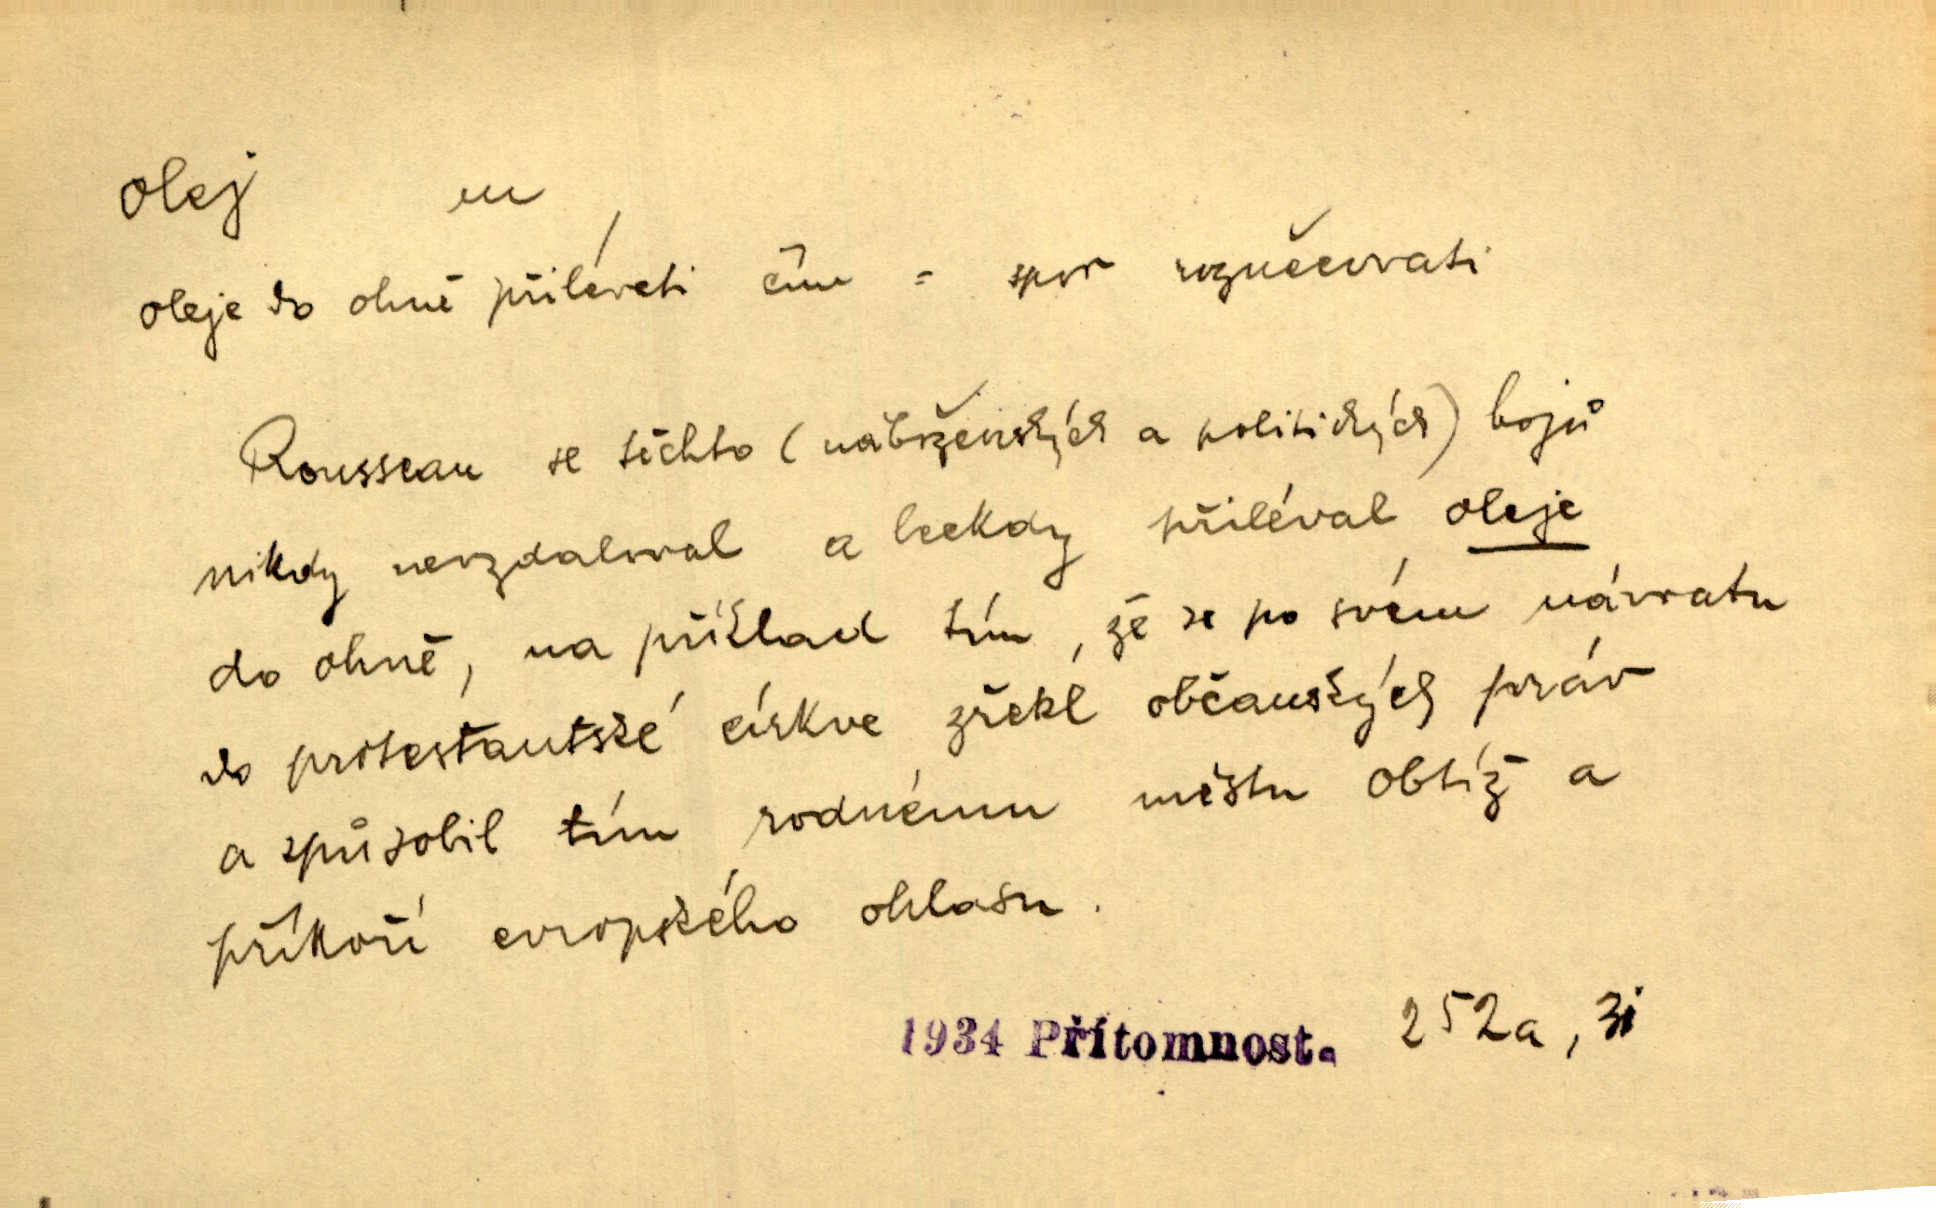 olej m
oleje do ohně přilévati čím = spor rozněcovati
Rousseau se těchto (náboženských a politických) bojů
nikdy nevzdaloval a leckdy přiléval oleje
do ohně, na příklad tím, že se po svém návratu
do protestantské církve zřekl občanských práv
a způsobil tím rodnému městu obtíž a
příkoří evropského ohlasu.
1934 Přítomnost. 252a, 3i